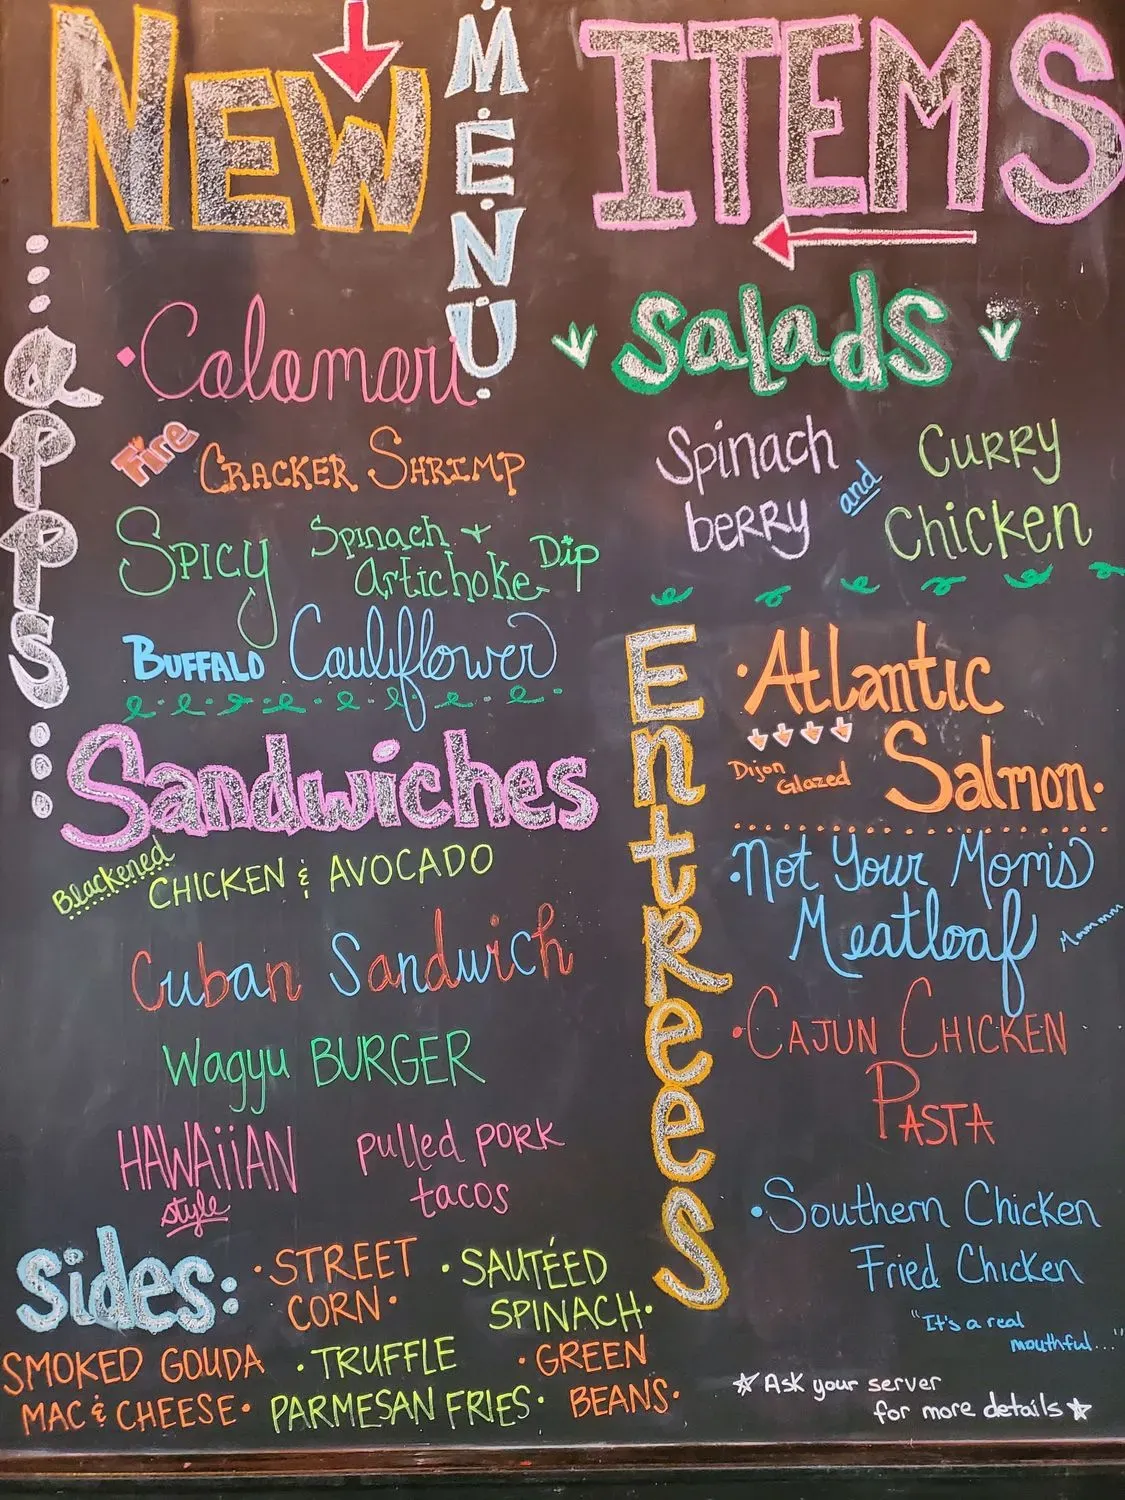 NEW MENU ITEMS
apps
Calamari
Fire CRACKER SHRIMP
SPICY Spinach + Artichoke Dip
BUFFALO Cauliflower
Sandwiches
Blackened CHICKEN & AVOCADO
Cuban Sandwich
Wagyu BURGER
HAWAiiAN style pulled pork tacos
Sides:
STREET CORN
SAUTÉED SPINACH
SMOKED GOUDA MAC & CHEESE
TRUFFLE PARMESAN FRIES
GREEN BEANS
Salads
Spinach berry and Curry Chicken
EntReeS
Atlantic Salmon
Dijon Glazed
Not Your Mom's Meatloaf Mmmmm
CAJUN CHICKEN PASTA
Southern Chicken Fried Chicken
"It's a real
mouthful..."
Ask your server
for more details